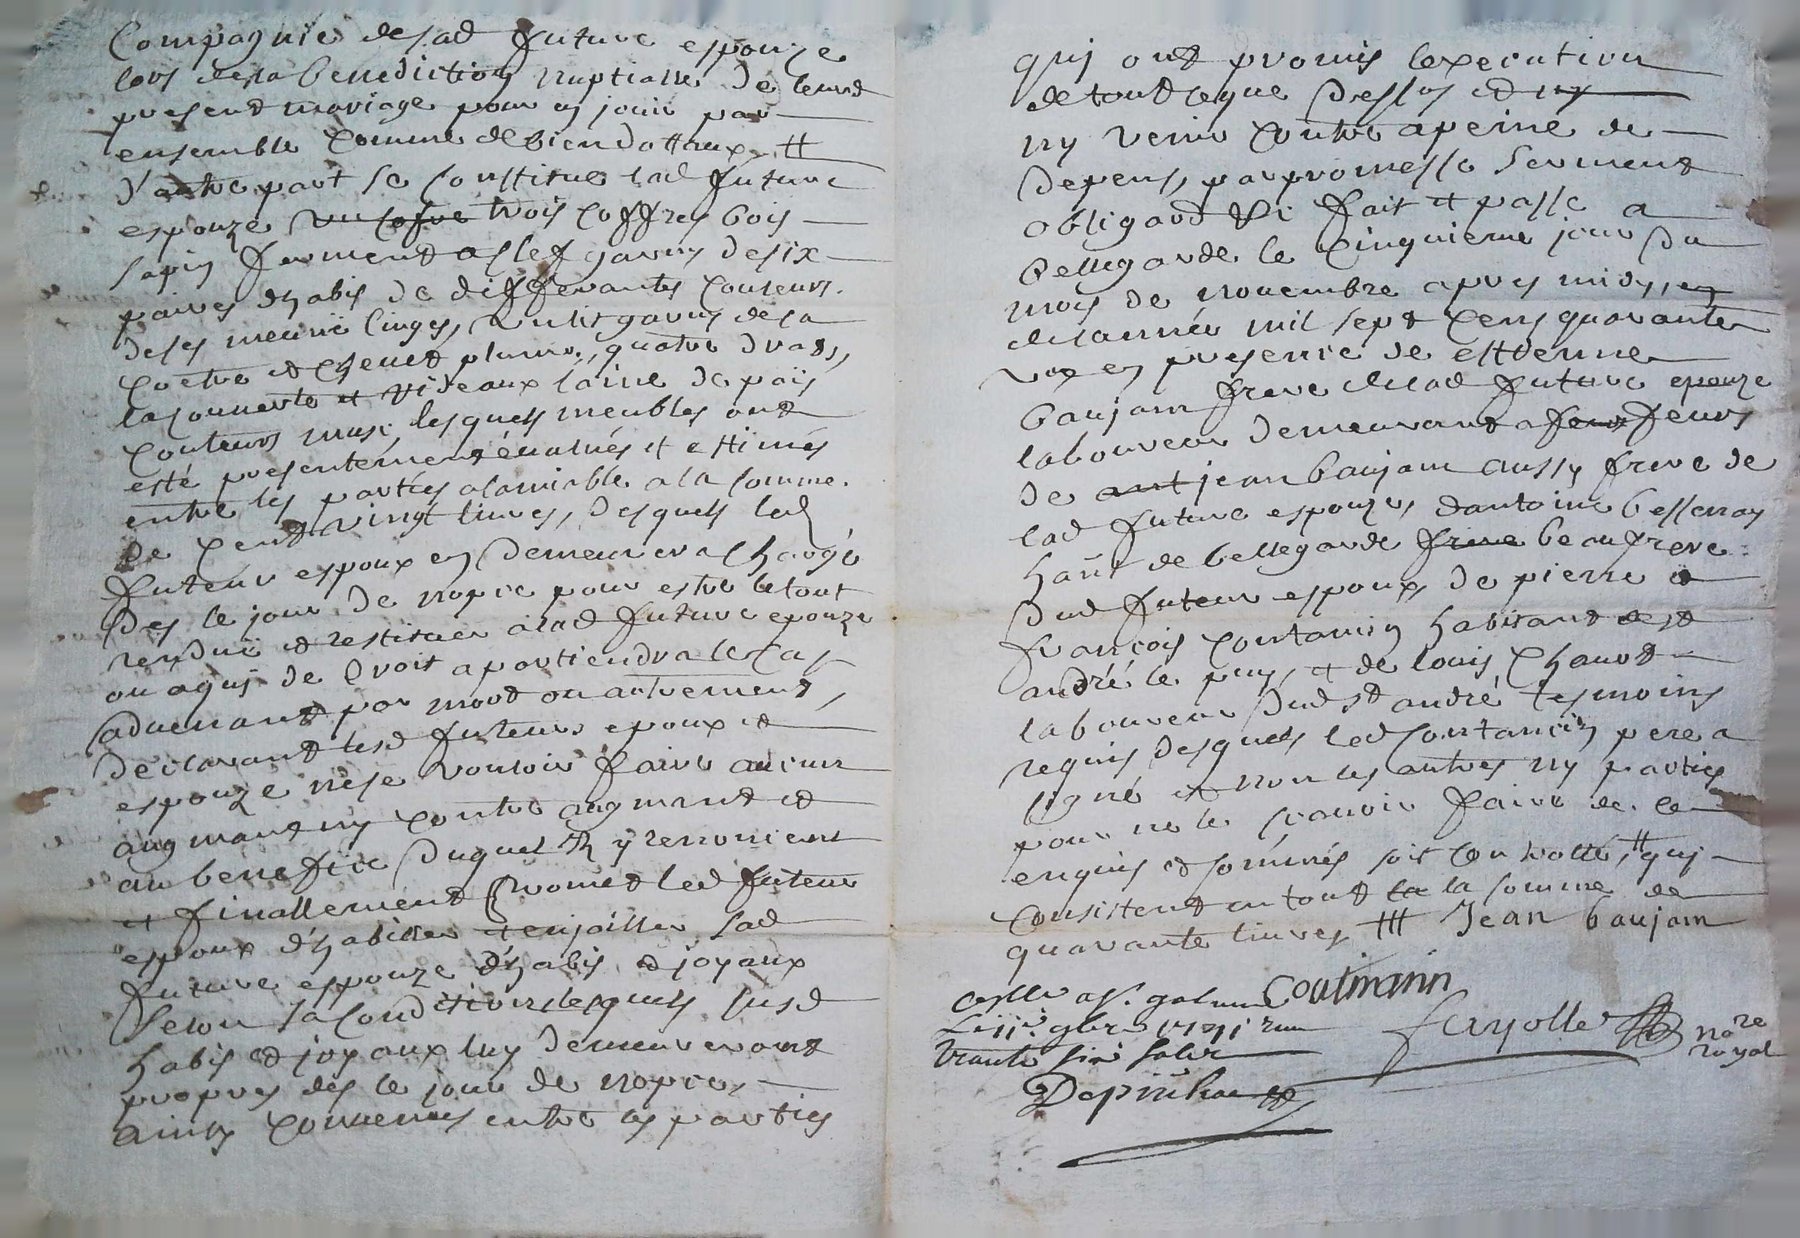 Compagnie de sad future espouze
lors de la benediction nuptialle de leurd
present mariage pour en jouir par
ensemble comme de bien dottaux #
d'autre part se constitue lad future
espouze un cofre trois coffres bois
sapin fermend a clef garnis de six
paires d'habis de differantes couleurs.
de ses menüe linges, un lit garny de sa
coetre et chevet plume, quatre draps,
la couverte et rideaux laine de païs
couleurs musc, lesquels meubles ont
esté presentement évalués et estimés
entre les parties a lamiable a la somme.
de cent vingt livres, desquels led
futeur espoux en demeurera chargé
des le jour de nopce pour estre le tout
rendüe et restituer a lad future epouze
ou a qui de droit apartiendra le cas
advenant par mort ou autrement,
declarant lesd futeurs epoux et
espouze ne se vouloir faire aucun
augmant ny contre augmant et
au benefice duquel ils y renoncient
et finallement promet led futeur
espoux d'habiller et enjoailler sad
future espouze d'habis et joyaux
selon sa condition lesquels susd
habis et joyaux luy demeureront
propres des le jour de nopces
ainsy convenus entre les parties
qui ont promis lexecution
de tout ce que dessus et ny
ny venir contre a peine de
depens, par promesse serment
obligaõn &c fait et passé a
bellegarde le cinquieme jour du
mois de novembre apres midy, en
de lannée mil sept cens quarante
un en presence de estienne
baujam frere de lad future epouze
laboureur demeurant a feur feurs
de ant jean baujam aussy frere de
lad future espouze, dantoine bessenay
hañt de bellegarde frere beaufrere
dud futeur espoux, de pierre et
françois contamin habitant de st
andré le puy, et de louis chaut
laboureur dud st andré tesmoins
requis desquels led contamin pere a
signé et non les autres ny parties
pour ne le scavoir faire de ce
enquis et sommés soit controllé, # qui
consistent en tout la la somme de
quarante livres ### Jean baujam
coutmanin
Collé a St galmier
fayolle
no.re
royal
trante six sols
Depinhac